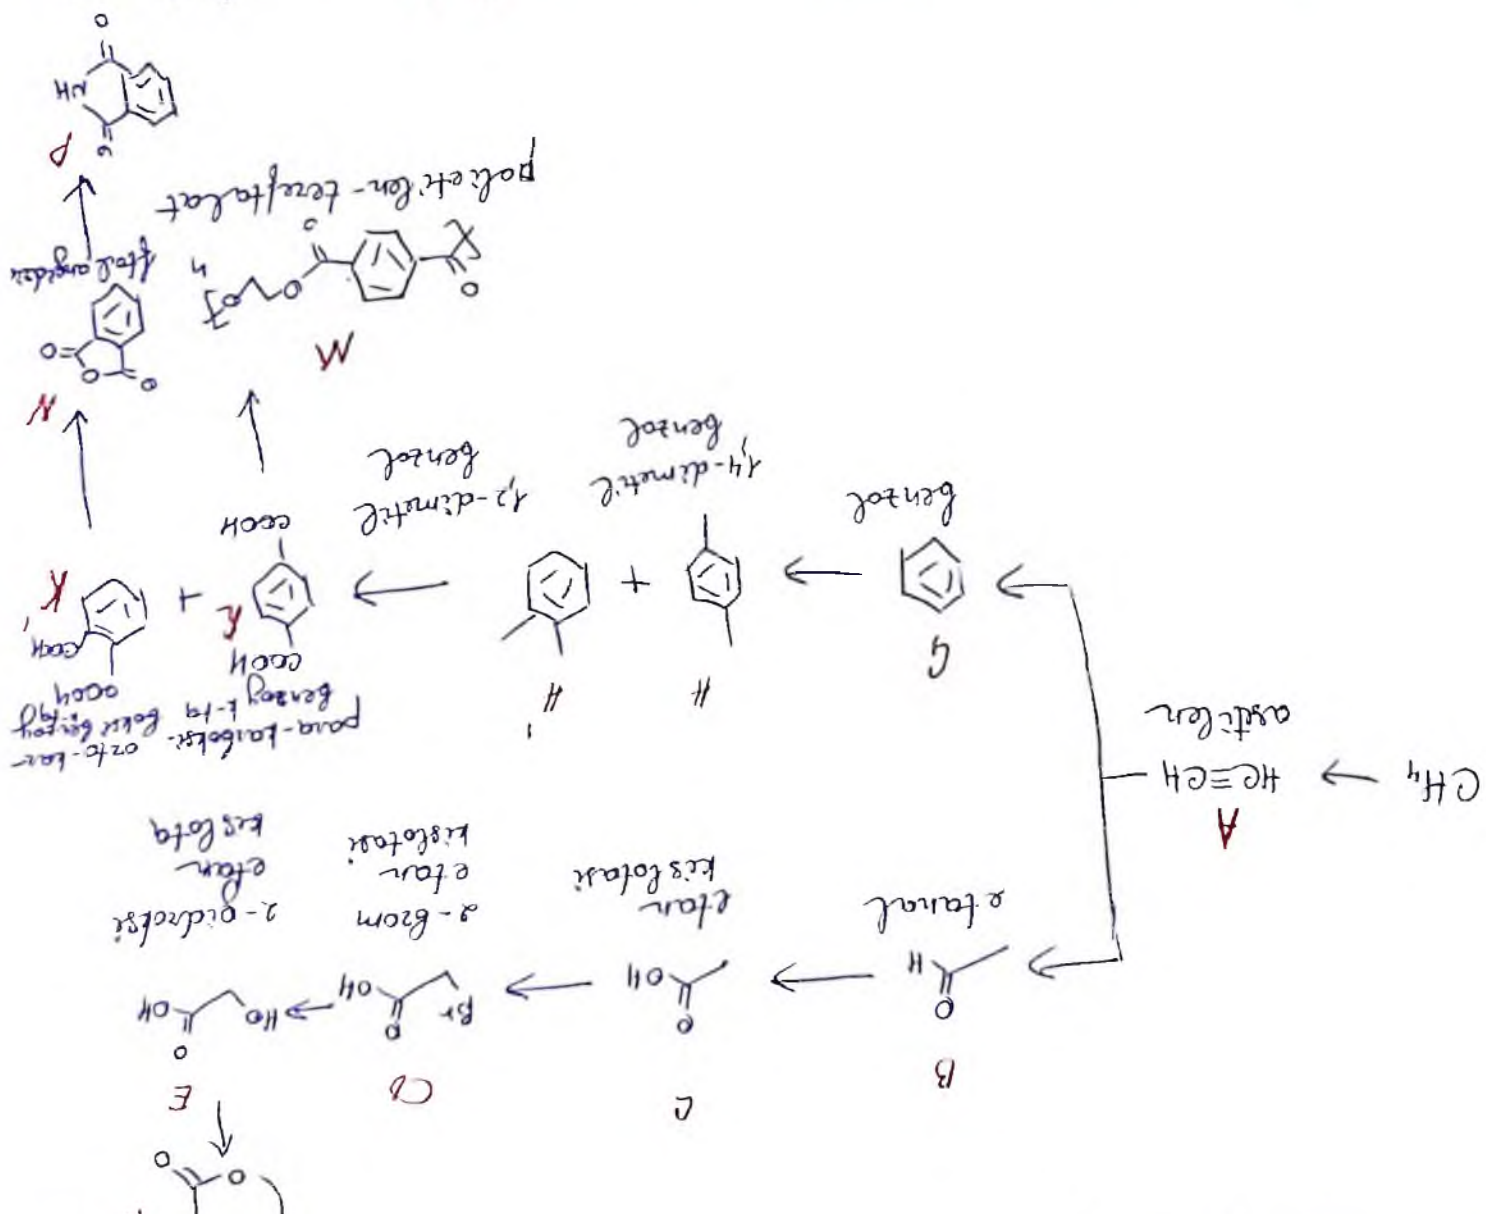 CH₄ → HC≡CH
A
asetilen
B
etanal
C
etan
kislotasi
2-brom
etan
kislotasi
E
2-gidroksi
etan
kislota
G
benzol
H
1,4-dimetil
benzol
+
H'
1,2-dimetil
benzol
para-karboksi-
benzoy k-ta
COOH
K
COOH
+
orto-kar-
boksi benzoy
COOH
COOH
K'
M
n
polietilen-tereftalat
N
ftal angidrid
P
NH